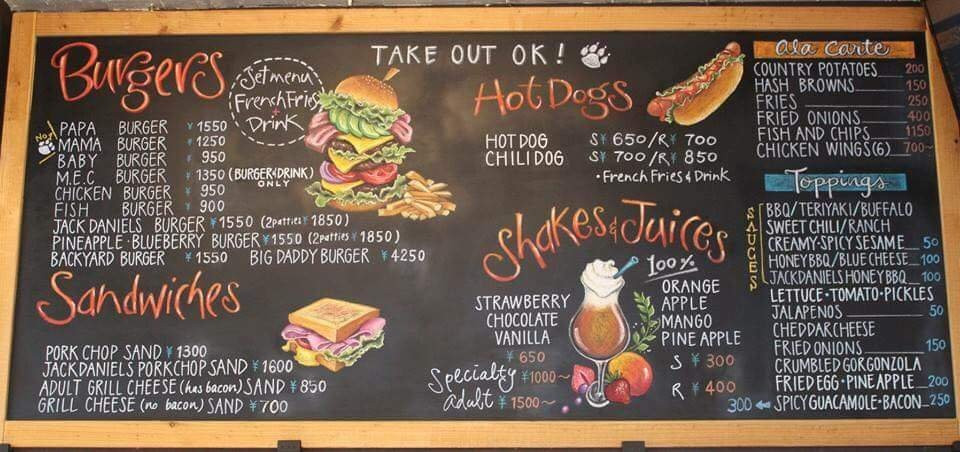 TAKE OUT OK!
Burgers
Set menu
French Fries
+
Drink
No.1
PAPA BURGER ¥1550
MAMA BURGER ¥1250
BABY BURGER ¥950
M.E.C BURGER ¥1350 (BURGER&DRINK) ONLY
CHICKEN BURGER ¥950
FISH BURGER ¥900
JACK DANIELS BURGER ¥1550 (2patties ¥1850)
PINEAPPLE·BLUEBERRY BURGER ¥1550 (2patties ¥1850)
BACKYARD BURGER ¥1550 BIG DADDY BURGER ¥4250
Sandwiches
PORK CHOP SAND ¥1300
JACK DANIELS PORKCHOP SAND ¥1600
ADULT GRILL CHEESE (has bacon) SAND ¥850
GRILL CHEESE (no bacon) SAND ¥700
Hot Dogs
HOT DOG S¥650/R¥700
CHILI DOG S¥700/R¥850
·French Fries & Drink
Shakes & Juices
STRAWBERRY
CHOCOLATE
VANILLA
¥650
Specialty ¥1000~
adult ¥1500~
100%
ORANGE
APPLE
MANGO
PINE APPLE
S ¥300
R ¥400
ala carte
COUNTRY POTATOES 200
HASH BROWNS 150
FRIES 250
FRIED ONIONS 400
FISH AND CHIPS 1150
CHICKEN WINGS(6) 700~
Toppings
SAUCES
BBQ/TERIYAKI/BUFFALO
SWEET CHILI/RANCH
CREAMY-SPICY SESAME 50
HONEY BBQ/BLUE CHEESE 100
JACK DANIELS HONEY BBQ 100
LETTUCE·TOMATO·PICKLES
JALAPENOS 50
CHEDDAR CHEESE
FRIED ONIONS 150
CRUMBLED GORGONZOLA
FRIED EGG·PINE APPLE 200
300 ← SPICY GUACAMOLE·BACON 250